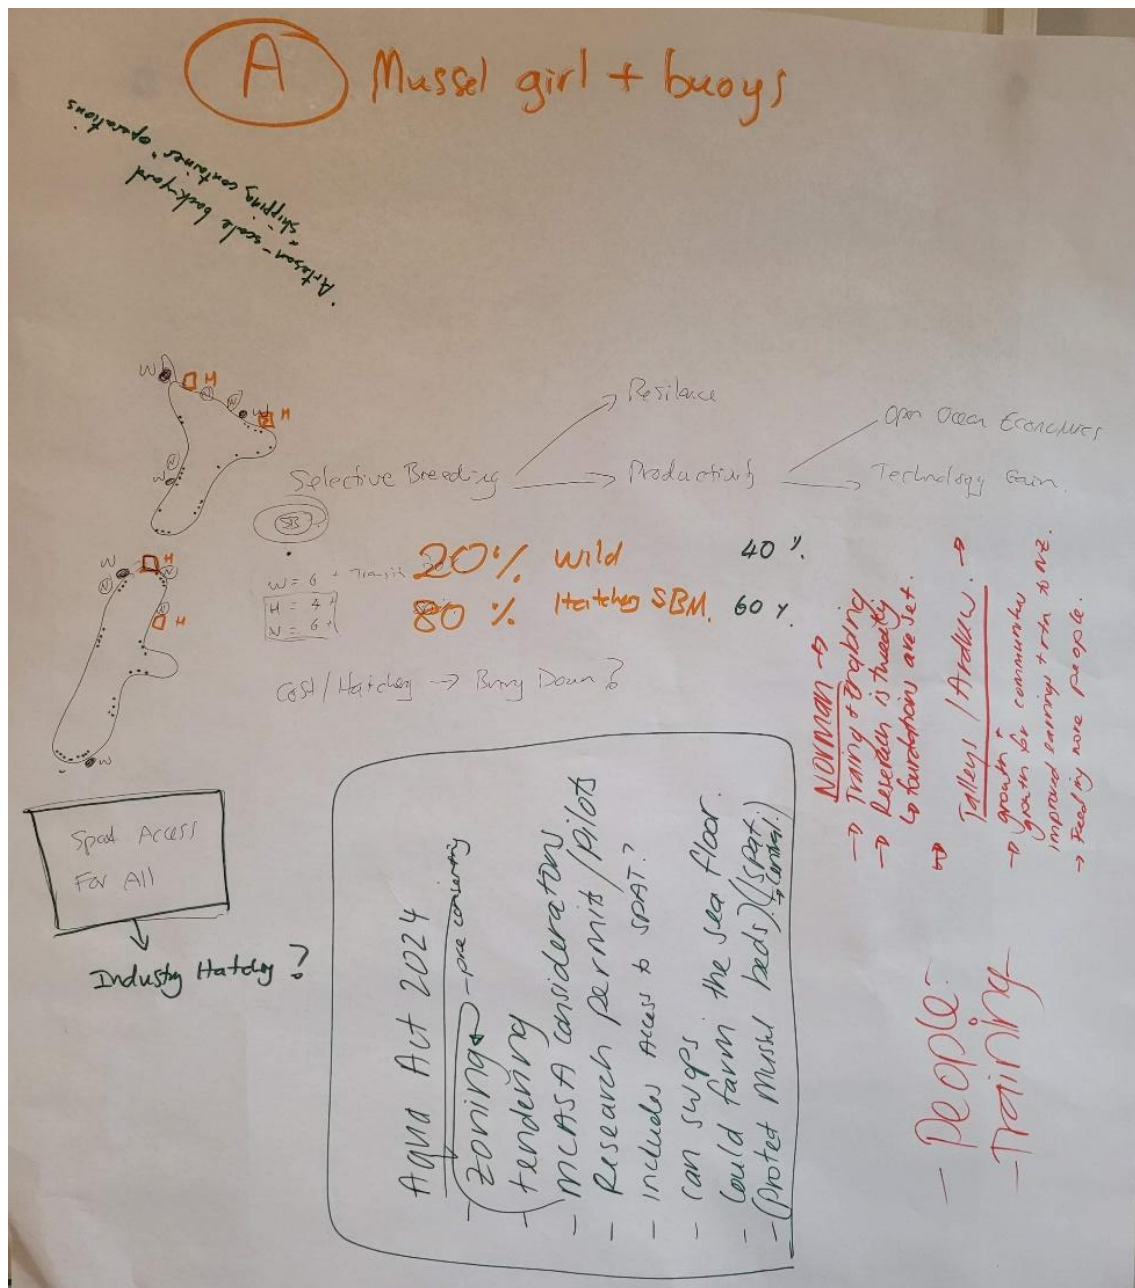 A Mussel girl + buoys
'Artesan-scale backyard
"shipping container" operations
W
H
N
N
W
H
N
W
Resilance
Selective Breeding
Productivity
Open Ocean Economics
Technology Gain.
SB
W
H
N
N
N
H
W
W = 6 + Transit
H = 4+
N = 6+
20% wild 40%.
80% Hatchery SBM. 60%.
Cost/Hatchery → Bring Down?
Spat Access
For All
Industry Hatchery?
Aqua Act 2024
- Zoning - pre consenting
- tendering
- MCASA considerations
- Research permits/pilots
- includes Access to SPAT?
- can swops
- Could farm the sea floor.
- (Protect Mussel beds)(spat.)
NORMAN →
→ Training + Enabling
→ Research is
↳ foundations are set.
Talleys / Ardlaw. →
→ growth +
growth for communities
improved earnings + rtn to NZ.
→ Feeding more people.
- People-
- Training-